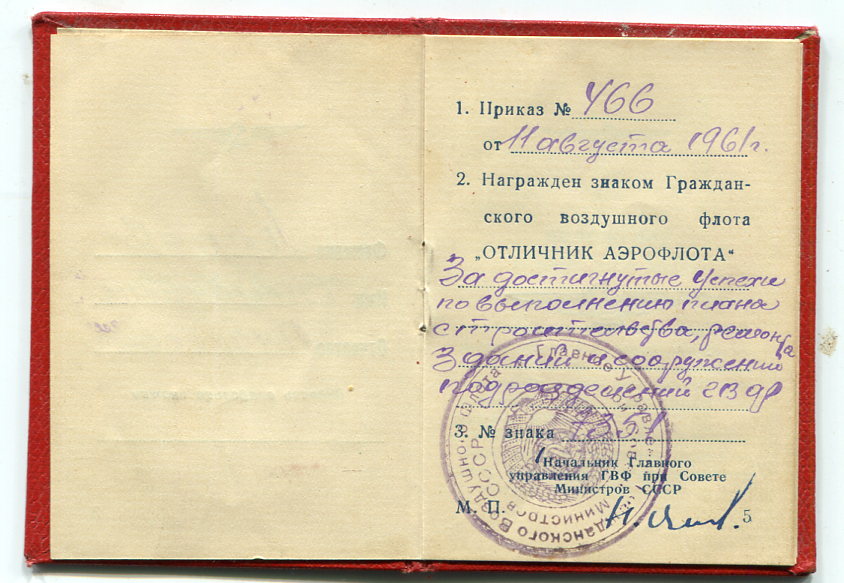 1. Приказ № 466
от 11 августа 1961г.
2. Награжден знаком Граждан-
ского воздушного флота
„ОТЛИЧНИК АЭРОФЛОТА“
За достигнутые успехи
по выполнению плана
строительства, ремонта
зданий и сооружений
подразделений ГВФ
3. № знака
Начальник Главного
управления ГВФ при Совете
Министров СССР
М. П.
5
Главное Управление
Гражданского Воздушного Флота
Министров СССР